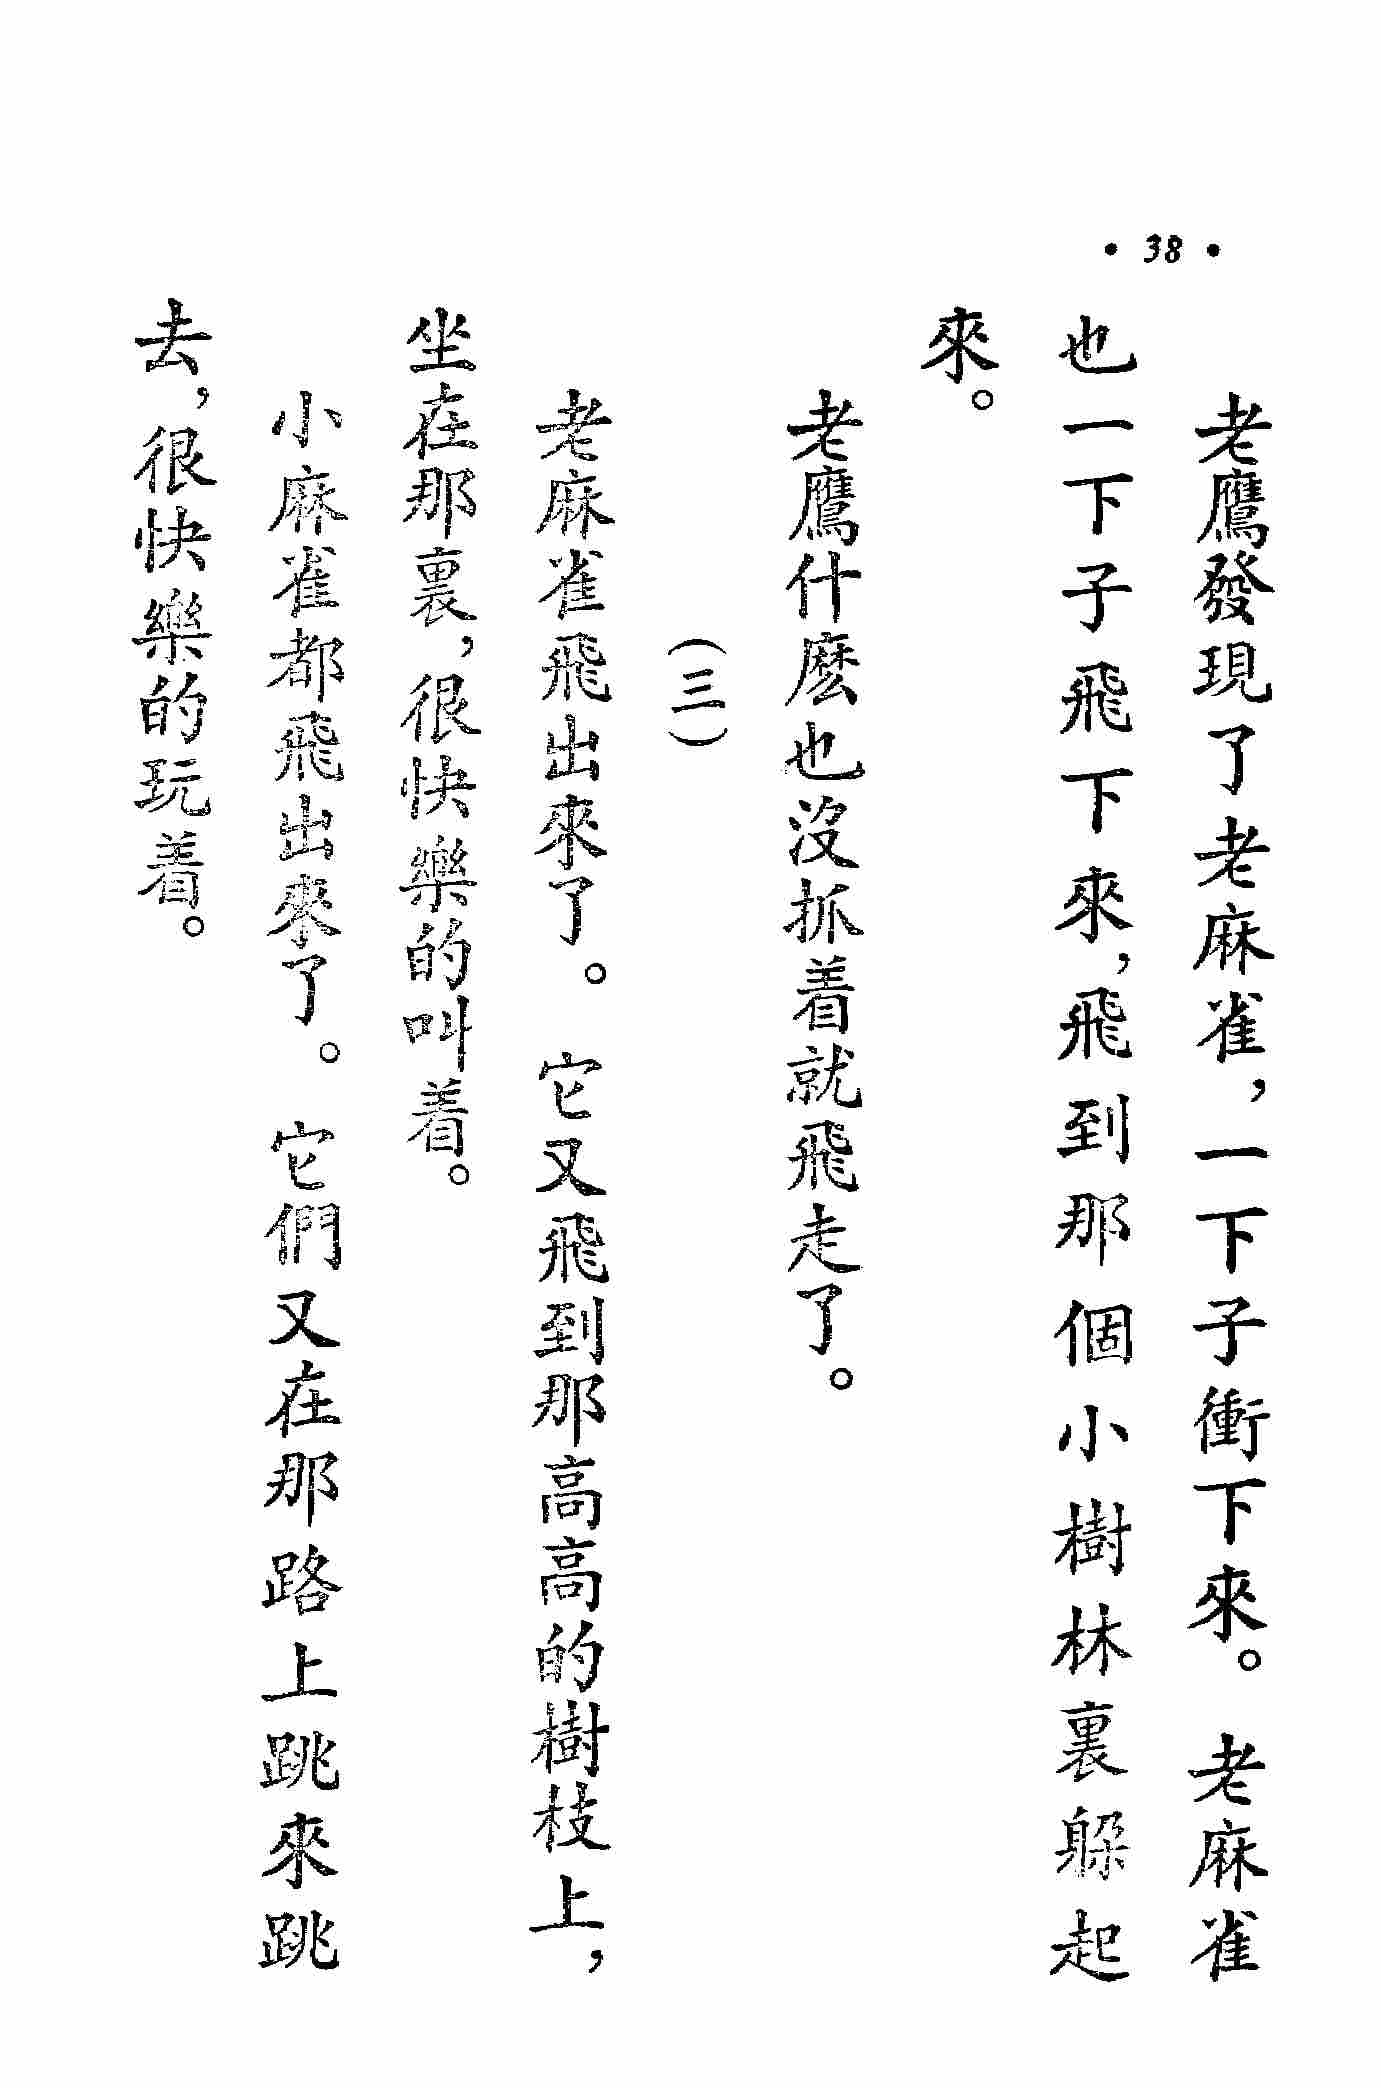 • 38 •
老鷹發現了老麻雀，一下子衝下來。老麻雀
也一下子飛下來，飛到那個小樹林裏躲起
來。
老鷹什麽也沒抓着就飛走了。
（三）
老麻雀飛出來了。它又飛到那高高的樹枝上，
坐在那裏，很快樂的叫着。
小麻雀都飛出來了。它們又在那路上跳來跳
去，很快樂的玩着。